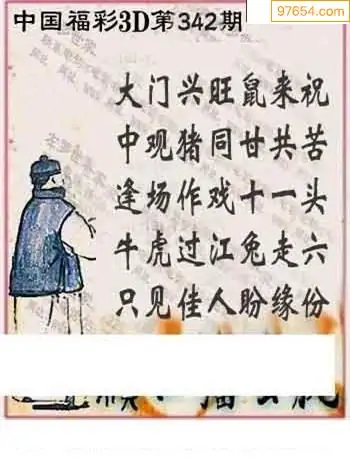 中国福彩3D第342期
97654.com
大门兴旺鼠来祝
中观猪同甘共苦
逢场作戏十一头
牛虎过江兔走六
只见佳人盼缘份